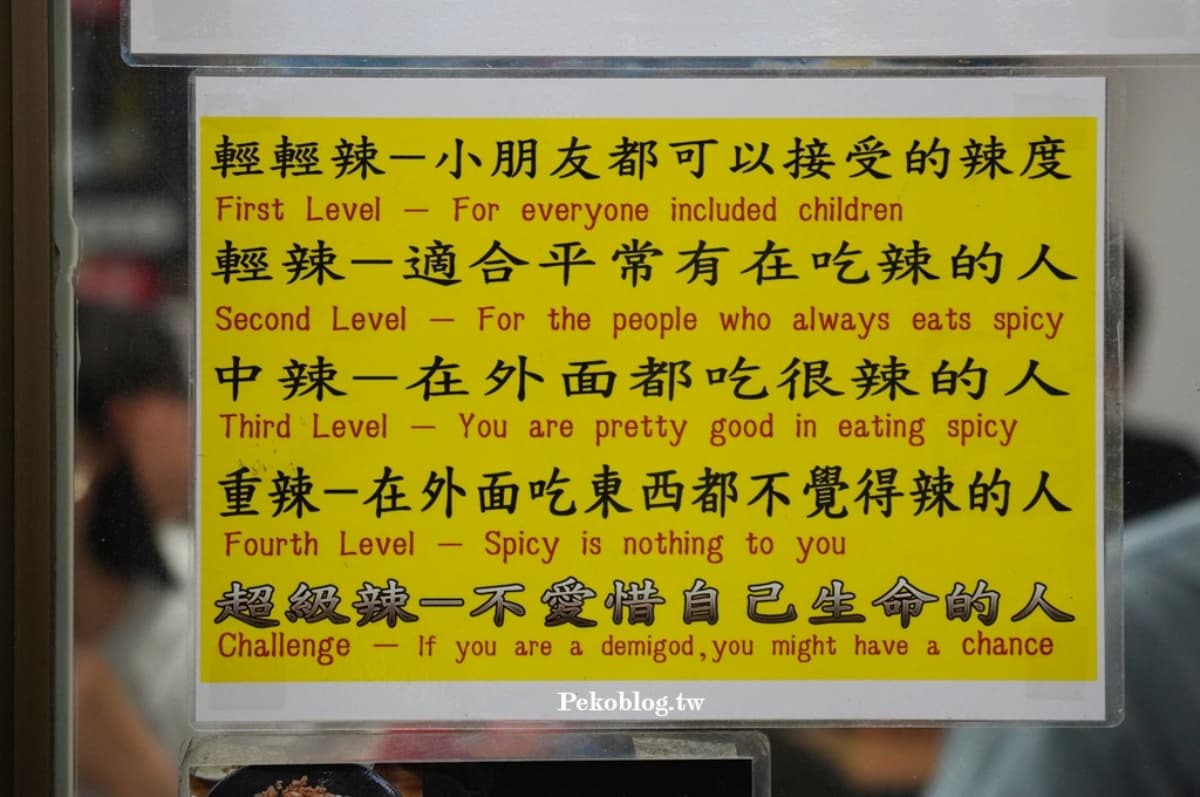 輕輕辣－小朋友都可以接受的辣度
First Level － For everyone included children
輕辣－適合平常有在吃辣的人
Second Level － For the people who always eats spicy
中辣－在外面都吃很辣的人
Third Level － You are pretty good in eating spicy
重辣－在外面吃東西都不覺得辣的人
Fourth Level － Spicy is nothing to you
超級辣－不愛惜自己生命的人
Challenge － If you are a demigod,you might have a chance
Pekoblog.tw